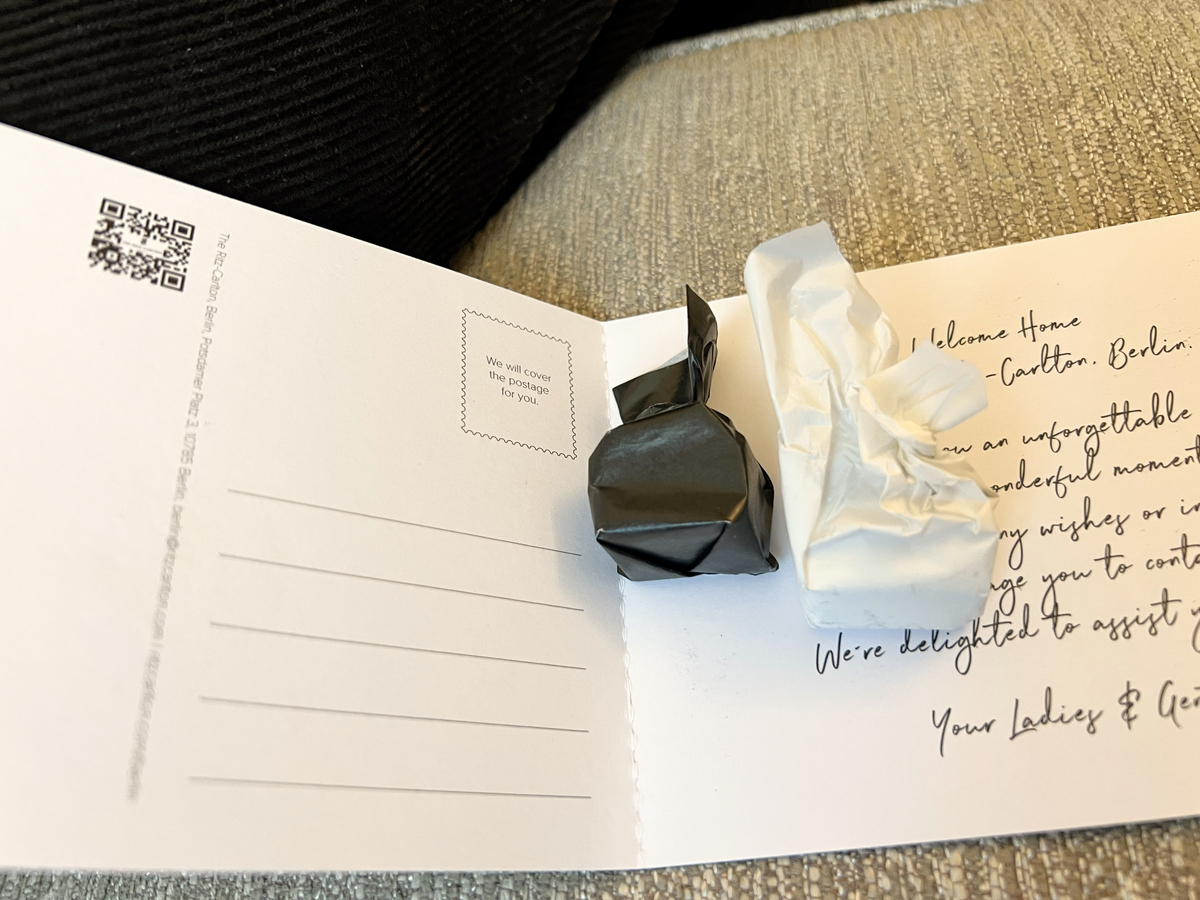 The Ritz-Carlton, Berlin, Potsdamer Platz 3, 10785 Berlin, berlin@ritzcarlton.com |
We will cover
the postage
for you.
Welcome Home
-Carlton, Berlin.
an unforgettable
wonderful moment
wishes or
you to
We're delighted to assist
Your Ladies &